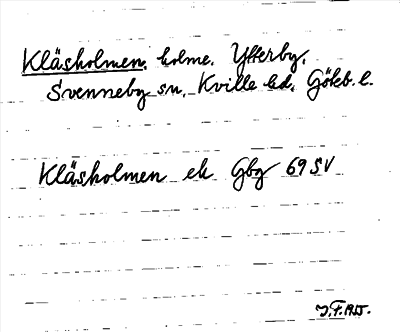 Kläsholmen, holme, Ytterby,
Svenneby sn, Kville hd, Göteb. l.
Kläsholmen ek Gbg 69 SV